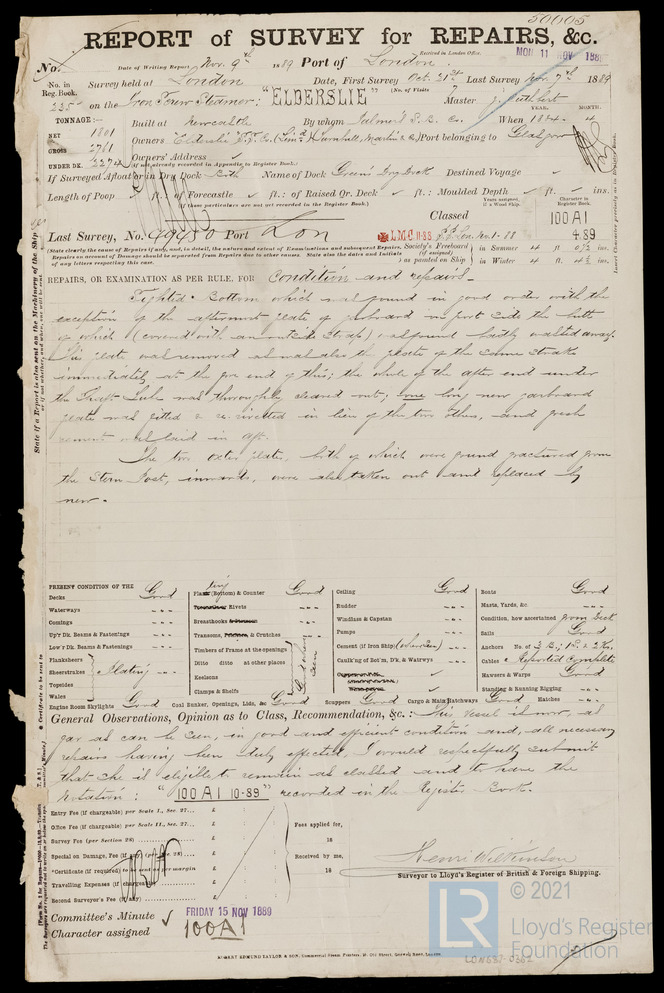 50005
REPORT of SURVEY for REPAIRS, &c.
Received in London Office,
MON 11 NOV 1889
No. Date of Writing Report Nov. 9th 1889 Port of London.
No. in Reg. Book. Survey held at London Date, First Survey Oct. 21st Last Survey Nov. 7th 1889
(No. of Visits
on the Iron Screw Steamer: "ELDERSLIE" Master J. Cuthbert
TONNAGE:— Built at Newcastle By whom Palmer's S.B. Co. When 1884 - 4
YEAR. MONTH.
NET 1801
GROSS 2761
Owners Port belonging to Glasgow
UNDER DK. 2274
Owners' Address
(if not already recorded in Appendix to Register Book.)
If Surveyed Afloat or in Dry Dock Both Name of Dock Green's Dry Dock Destined Voyage
Length of Poop ft.: of Forecastle ft.: of Raised Qr. Deck ft.: Moulded Depth ft. ins.
(If these particulars are not yet recorded in the Register Book.)
Classed
Character in Register Book.
100 A1
4.89
Last Survey, No. 49980 Port Lon
LMC 11.88
Society's Freeboard (if assigned) as painted on Ship
in Summer 4 ft. 0½ ins.
in Winter 4 ft. 4½ ins.
REPAIRS, OR EXAMINATION AS PER RULE, FOR Condition and repairs.
Sighted Bottom which was found in good order with the
exception of the aftermost plate of garboard in port side the butt
of which (covered with an outside strap) was found badly wasted away.
This plate was removed as was also the plate of the same strake
immediately at the fore end of this; the whole of the after end under
the Shaft Tube was thoroughly cleaned out; one long new garboard
plate was fitted & re-rivetted in lieu of the two others, and fresh
cement was laid in aft.
The two oxter plates, both of which were found fractured from
the Stern Post, inwards, were also taken out and replaced by
new.
PRESENT CONDITION OF THE
Decks Good
Waterways
Comings
Up'r Dk. Beams & Fastenings
Low'r Dk. Beams & Fastenings
Planksheers
Sheerstrakes
Topsides
Wales
Plating
Engine Room Skylights Good
Plating (Bottom) & Counter Good
Rivets
Breasthooks
Transoms, & Crutches
Timbers of Frame at the openings
Ditto ditto at other places
Keelsons
Clamps & Shelfs
Good where seen
Coal Bunker, Openings, Lids, &c. Good
Ceiling Good
Rudder
Windlass & Capstan
Pumps
Cement (if Iron Ship) (where seen)
Caulking of Bot'm, D'k, & Watrwys
Scuppers Good Cargo & Main Hatchways Good
Boats Good
Masts, Yards, &c.
Condition, how ascertained from Deck
Sails Good
Anchors No. of 3 B., 1 S. & 2 K.
Cables Reported Complete
Hawsers & Warps Good
Standing & Running Rigging
Hatches
General Observations, Opinion as to Class, Recommendation, &c.: This Vessel is now, as
far as can be seen, in good and efficient condition and, all necessary
repairs having been duly effected, I would respectfully submit
that she is eligible to remain as classed and to have the
Notation: "100 A1 10-89" recorded in the Register Book.
Entry Fee (if chargeable) per Scale I., Sec. 27... £
Office Fee (if chargeable) per Scale II., Sec. 27... £
Survey Fee (per Section 28) £
Special on Damage, Fee (if any) (per Sec. 28) £
*Certificate (if required) to be sent as per margin £
Travelling Expenses (if chargeable) £
Second Surveyor's Fee (if any) £
Fees applied for,
18
Received by me,
18
Henri Wilkinson
Surveyor to Lloyd's Register of British & Foreign Shipping.
Committee's Minute FRIDAY 15 NOV 1889
Character assigned 100A1
LR
© 2021
Lloyd's Register
Foundation
LON687-0362